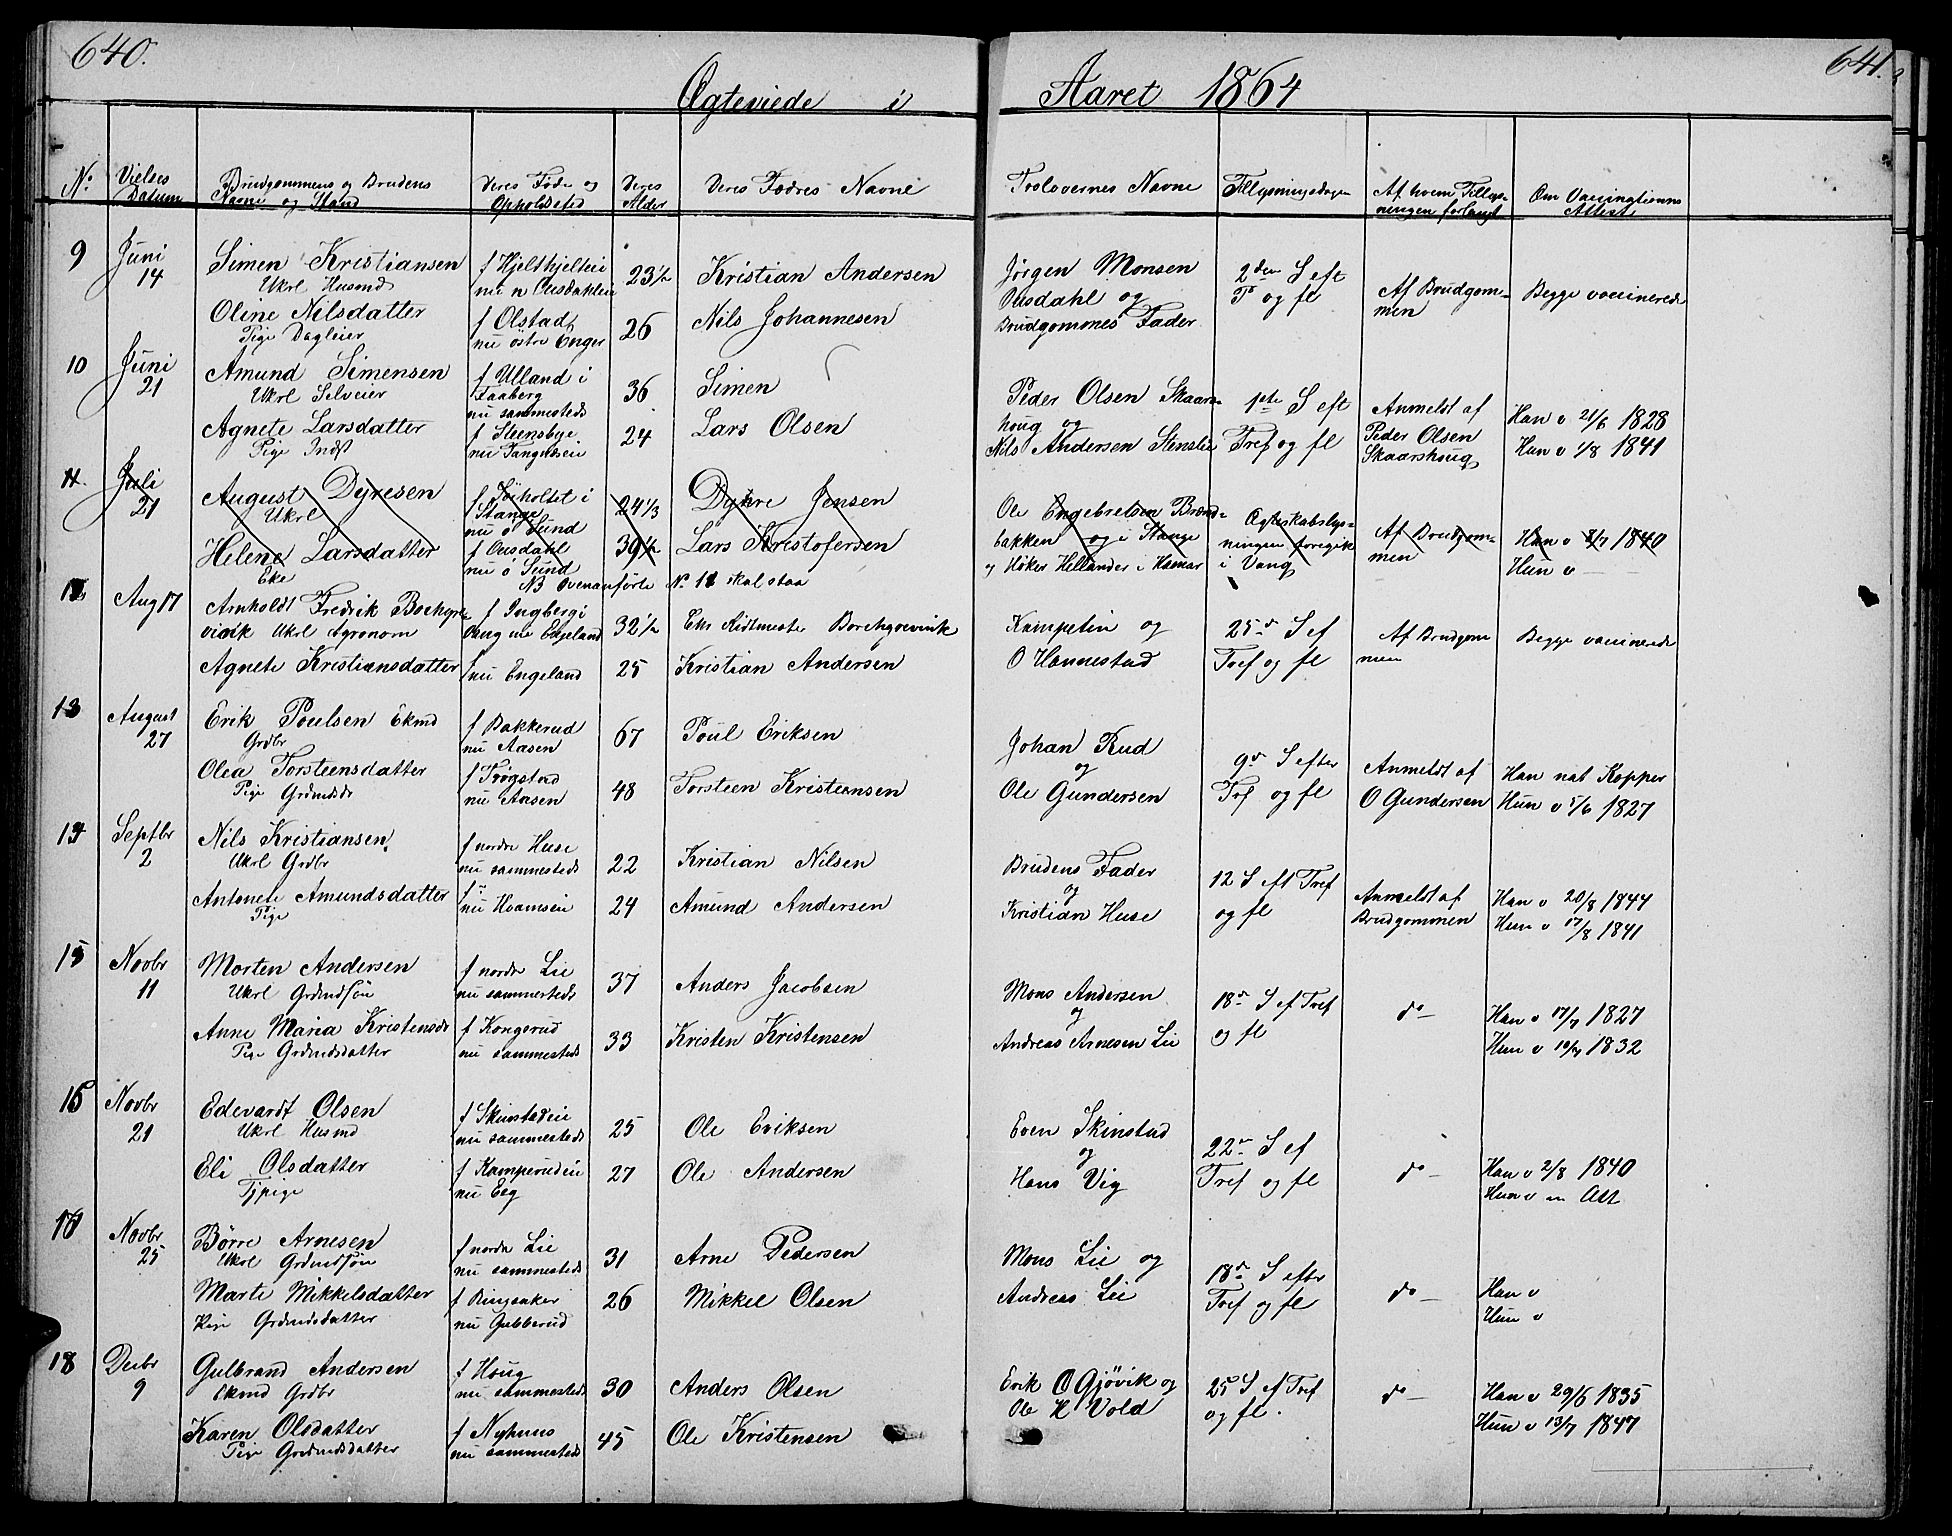 640.
641.
Ægteviede i Aaret 1864
No
Vielses Datum
Brudgommens og Brudens Navne og Stand
Deres Føde og Opholdssted
Deres Alder
Deres Fædres Navne
Forlovernes Navne
Tillysningsdagen
Af hvem Tillysningen forlangt
Om Vaccinationns Attest
9 Juni 14
Simen Kristiansen
Ukrl Husmd
f Hjelthjelteie
23½
Kristian Andersen
Oline Nilsdatter
Pige Dagleier
f Olstad
nu østre Enger
26
Nils Johannesen
Jørgen Monsen
Ousdahl og
Brudgommes Fader
2den S eft
T og fl
Af Brudgommen
Begge vaccinerede
10 Juni 21
Amund Simensen
Ukrl Selveier
f Ulland i
Faaberg
nu sammesteds
36
Simen
Agnete Larsdatter
Pige Indst
f Steensbye
24
Lars Olsen
Peder Olsen Skaarshoug og
Nils Andersen Stenslie
1ste S eft
Tref og fl
Anmeldt af
Peder Olsen
Skaarshoug
Han v 21/6 1828
Hun v 1/8 1841
11. Juli 21
August Dyresen
Ukrl
f Søeholtet i
Stange
nu ø Sund
24 1/3
Dyhre Jensen
Helene Larsdatter
Eke
f Ousdahl
nu ø Sund
39½
Lars Kristofersen
Ole Engebretsen Brændbakken og i Stange
og Høker Hellander i Hamar
Ægteskabslysningen foregik
i Vang
Af Brudgommen
Han v 8/7 1840
Hun v —
NB Ovenanførte No 11 skal staa
12 Aug 17
Arnholdt Fredrik Borchgrevink Ukrl Agronom
f Ingberg i
Vang nu Engeland
32½
Ekr Ridtmester Borchgrevink
Agnete Kristiansdatter
nu Engeland
25
Kristian Andersen
Kampetin og
O Hannestad
25d S ef
Tref og fl
Af Brudgommen
Begge vaccinerede
13 August 27
Erik Poulsen Ekmd
Grdbr
f Bakkerud
nu Aasen
67
Poul Eriksen
Olea Torsteensdatter
Pige Grdmdsdr
f Trøgstad
nu Aasen
48
Torsteen Kristiansen
Johan Rud
og
Ole Gundersen
9d S efter
Tref og fl
Anmeldt af
O Gundersen
Han nat Kopper
Hun v 5/6 1827
14 Septbr 2
Nils Kristiansen
Ukrl Grdbr
f nordre Huse
nu sammesteds
22
Kristian Nilsen
Antonete Amundsdatter
Pige
24
Amund Andersen
Brudens Fader
og
Kristian Huse
12 S eft Tref
og fl
Anmeldt af
Brudgommen
Han v 20/8 1844
Hun v 17/8 1841
15 Novbr 11
Morten Andersen
Ukrl Grdmdsøn
f nordre Lie
nu sammesteds
37
Anders Jacobsen
Anne Maria Kristensdr
Pige Grdmdsdatter
f Kongsrud
nu sammesteds
33
Kristen Kristensen
Mons Andersen
og
Andreas Arnesen Lie
18d S ef Tref
og fl
do —
Han v 17/7 1827
Hun v 19/7 1832
16 Novbr 21
Edevardt Olsen
Ukrl Husmd
f Skinstadeie
nu sammesteds
25
Ole Eriksen
Eli Olsdatter
Tjpige
f Kamperudeie
nu Eeg
27
Ole Andersen
Even Skinstad
og
Hans Vig
22d S ef
Tref og fl
do —
Han v 2/8 1840
Hun v m Att
17 Novbr 25
Børre Arnesen
Ukrl Grdmdsøn
f nordre Lie
nu sammesteds
31
Arne Pedersen
Marte Mikkelsdatter
Pige Grdmdsdatter
f Ringsaker
nu Gubberud
26
Mikkel Olsen
Mons Lie og
Andreas Lie
18d S efter
Tref og fl
do —
Han v
Hun v
18 Decbr 9
Gulbrand Andersen
Ekmd Grdbr
f Houg
nu sammesteds
30
Anders Olsen
Karen Olsdatter
Pige Grdmdsdatter
f Nyhuus
nu sammesteds
45
Ole Kristensen
Erik O Gjøvik og
Ole H Vold
25 S ef Tref
og fl.
do —
Han v 29/6 1835
Hun v 13/7 1847